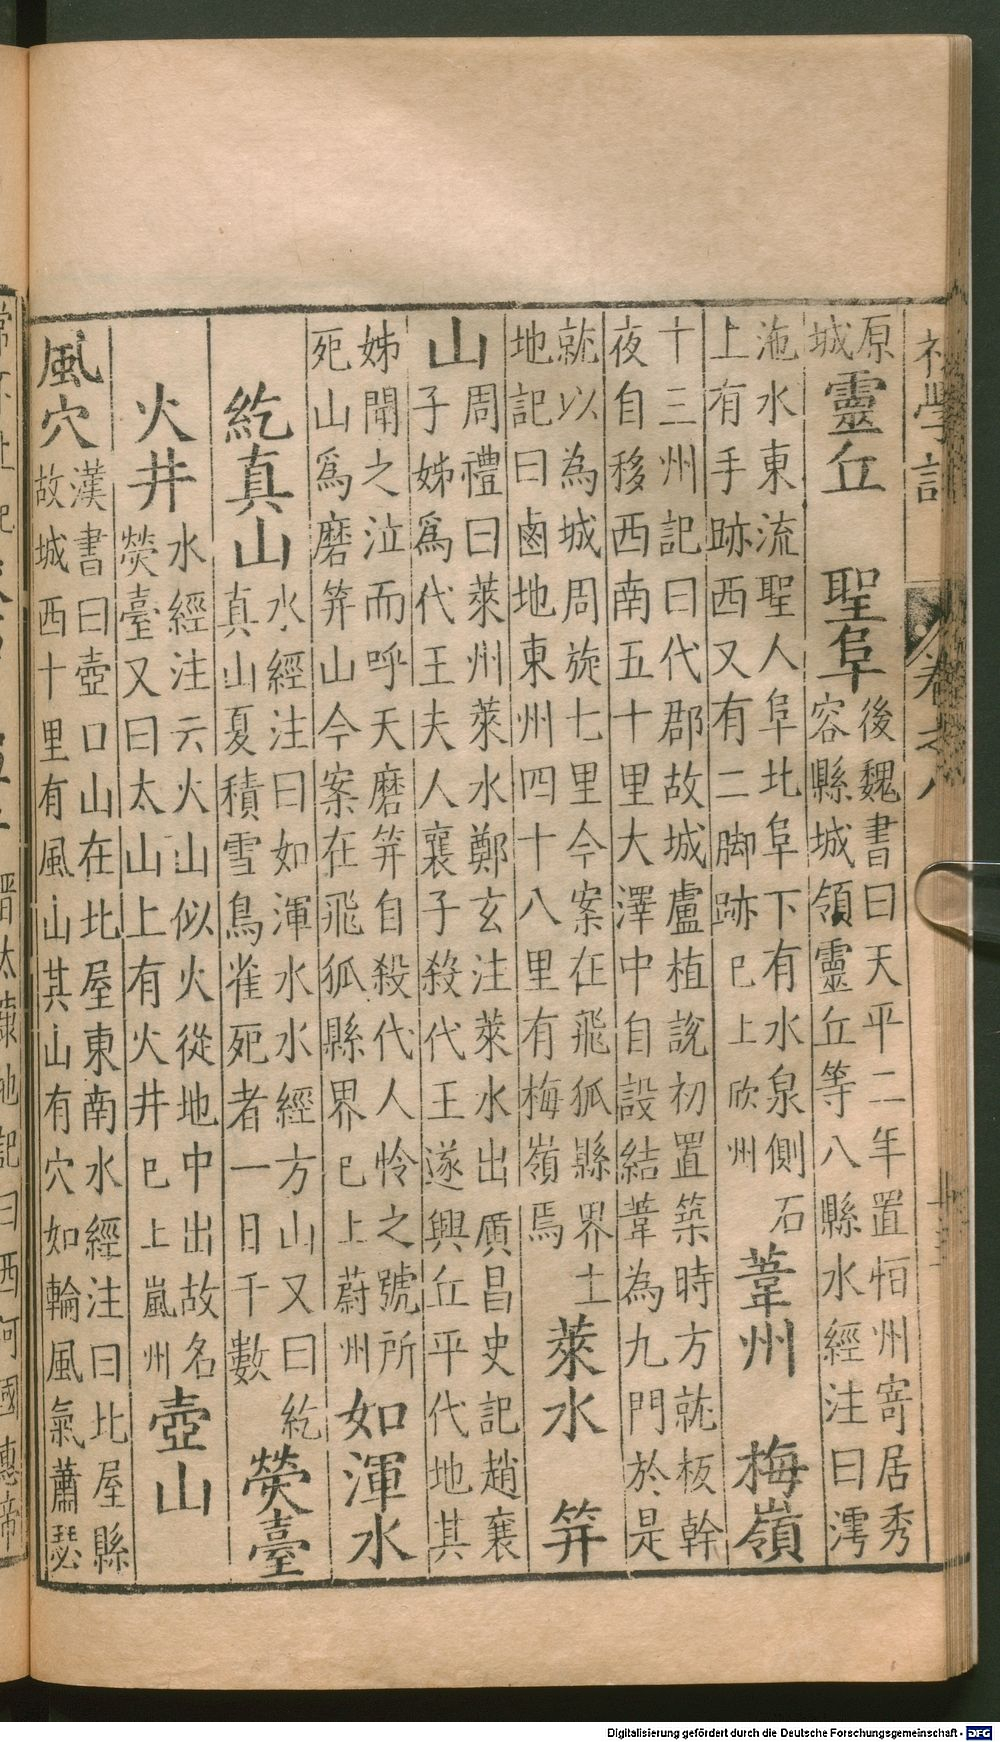 初學記 卷之八
原
城
靈丘 聖阜
後魏書曰天平二年置恒州寄居秀
容縣城領靈丘等八縣水經注曰澚
沲水東流聖人阜北阜下有水泉側石
上有手跡西又有二脚跡巳上欣州
葦州 梅嶺
十三州記曰代郡故城盧植說初置築時方就板幹
夜自移西南五十里大澤中自設結葦為九門於是
就以為城周旋七里今案在飛狐縣界土
地記曰鹵地東州四十八里有梅嶺焉
萊水 筓
山
周禮曰萊州萊水鄭玄注萊水出廣昌史記趙襄
子姊爲代王夫人襄子殺代王遂興丘平代地其
姊聞之泣而呼天磨筓自殺代人怜之號所
死山爲磨筓山今案在飛狐縣界巳上蔚州
如渾水
紇真山
水經注曰如渾水水經方山又曰紇
真山夏積雪鳥雀死者一日千數
熒臺
火井
水經注云火山似火從地中出故名
熒臺又曰太山上有火井巳上嵐州
壺山
風穴
漢書曰壺口山在北屋東南水經注曰北屋縣
故城西十里有風山其山有穴如輪風氣蕭瑟
Digitalisierung gefördert durch die Deutsche Forschungsgemeinschaft - DFG